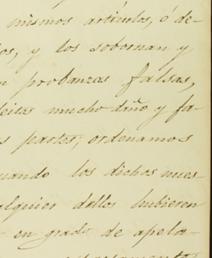 mismos artículos, ó de-
os, y los sobornan y
n probanzas falsas,
leitas mucho daño y fa-
s partes; ordenamos
uando los dichos nues
alquier dellos hubieren
en grado de apela-